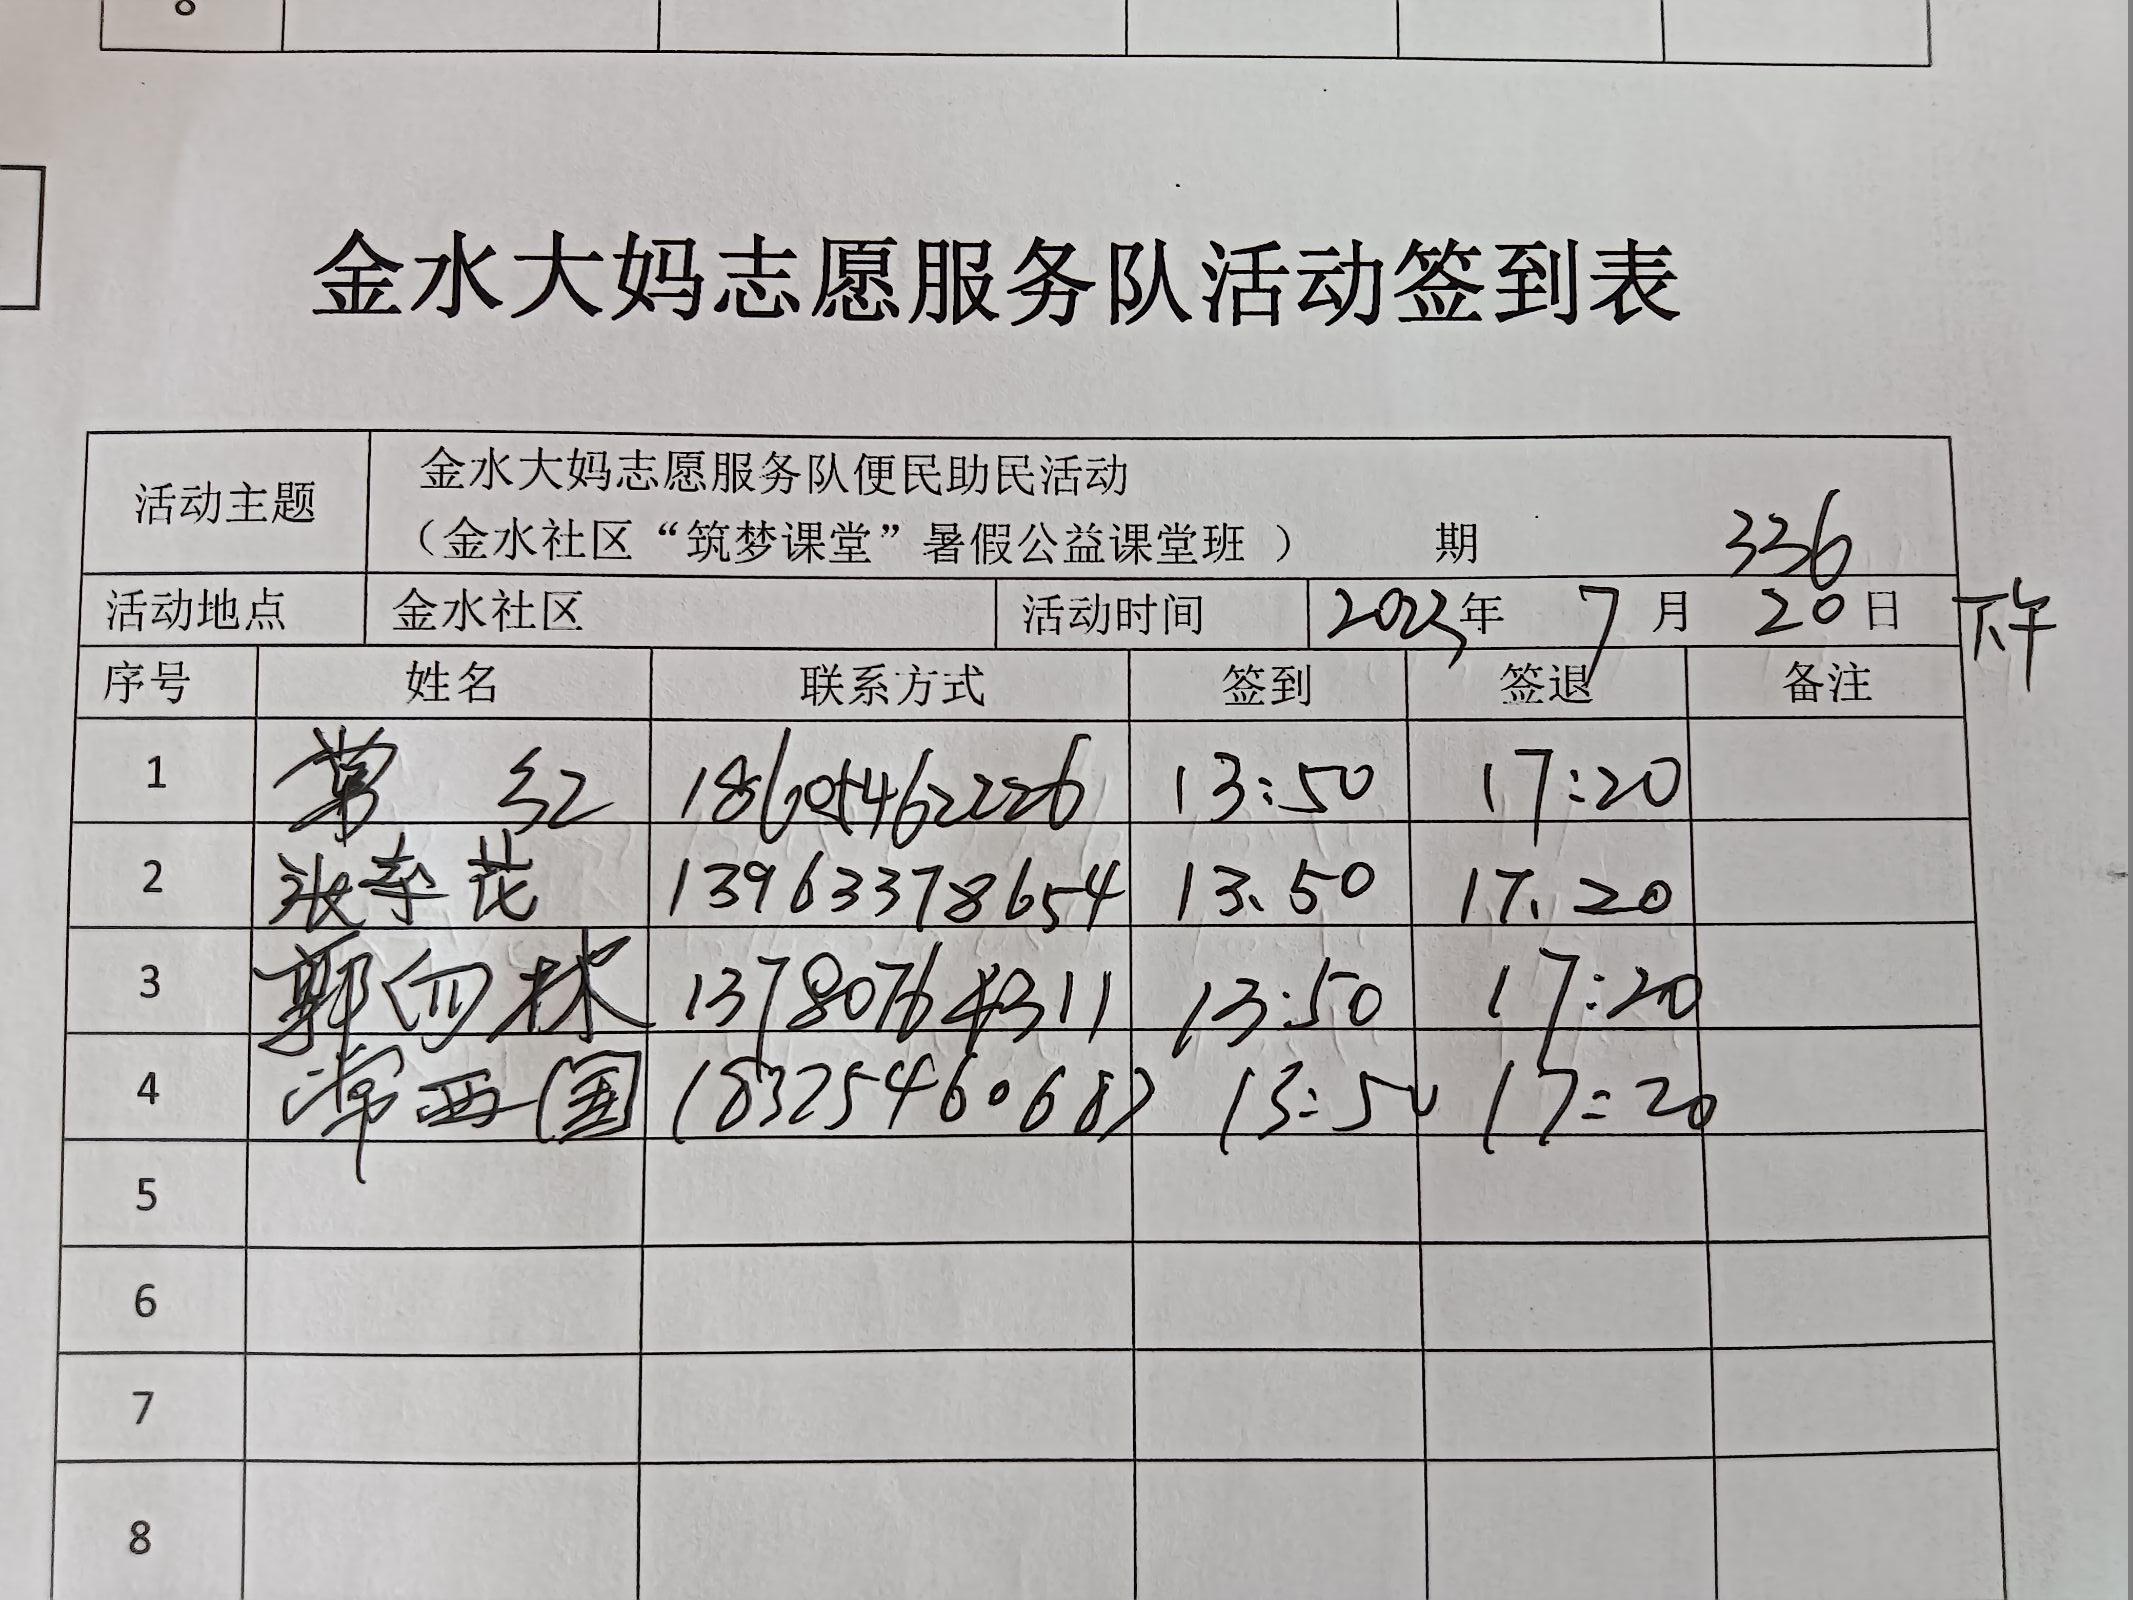 8
金水大妈志愿服务队活动签到表
活动主题 金水大妈志愿服务队便民助民活动
（金水社区“筑梦课堂”暑假公益课堂班 ） 期 336
活动地点 金水社区 活动时间 2023年 7月 20日 下午
序号 姓名 联系方式 签到 签退 备注
1 红 18605462226 13:50 17:20
2 张 花 13963378654 13.50 17.20
3 郭 林 13780764311 13:50 17:20
4 常西国 18325460687 13:50 17:20
5
6
7
8